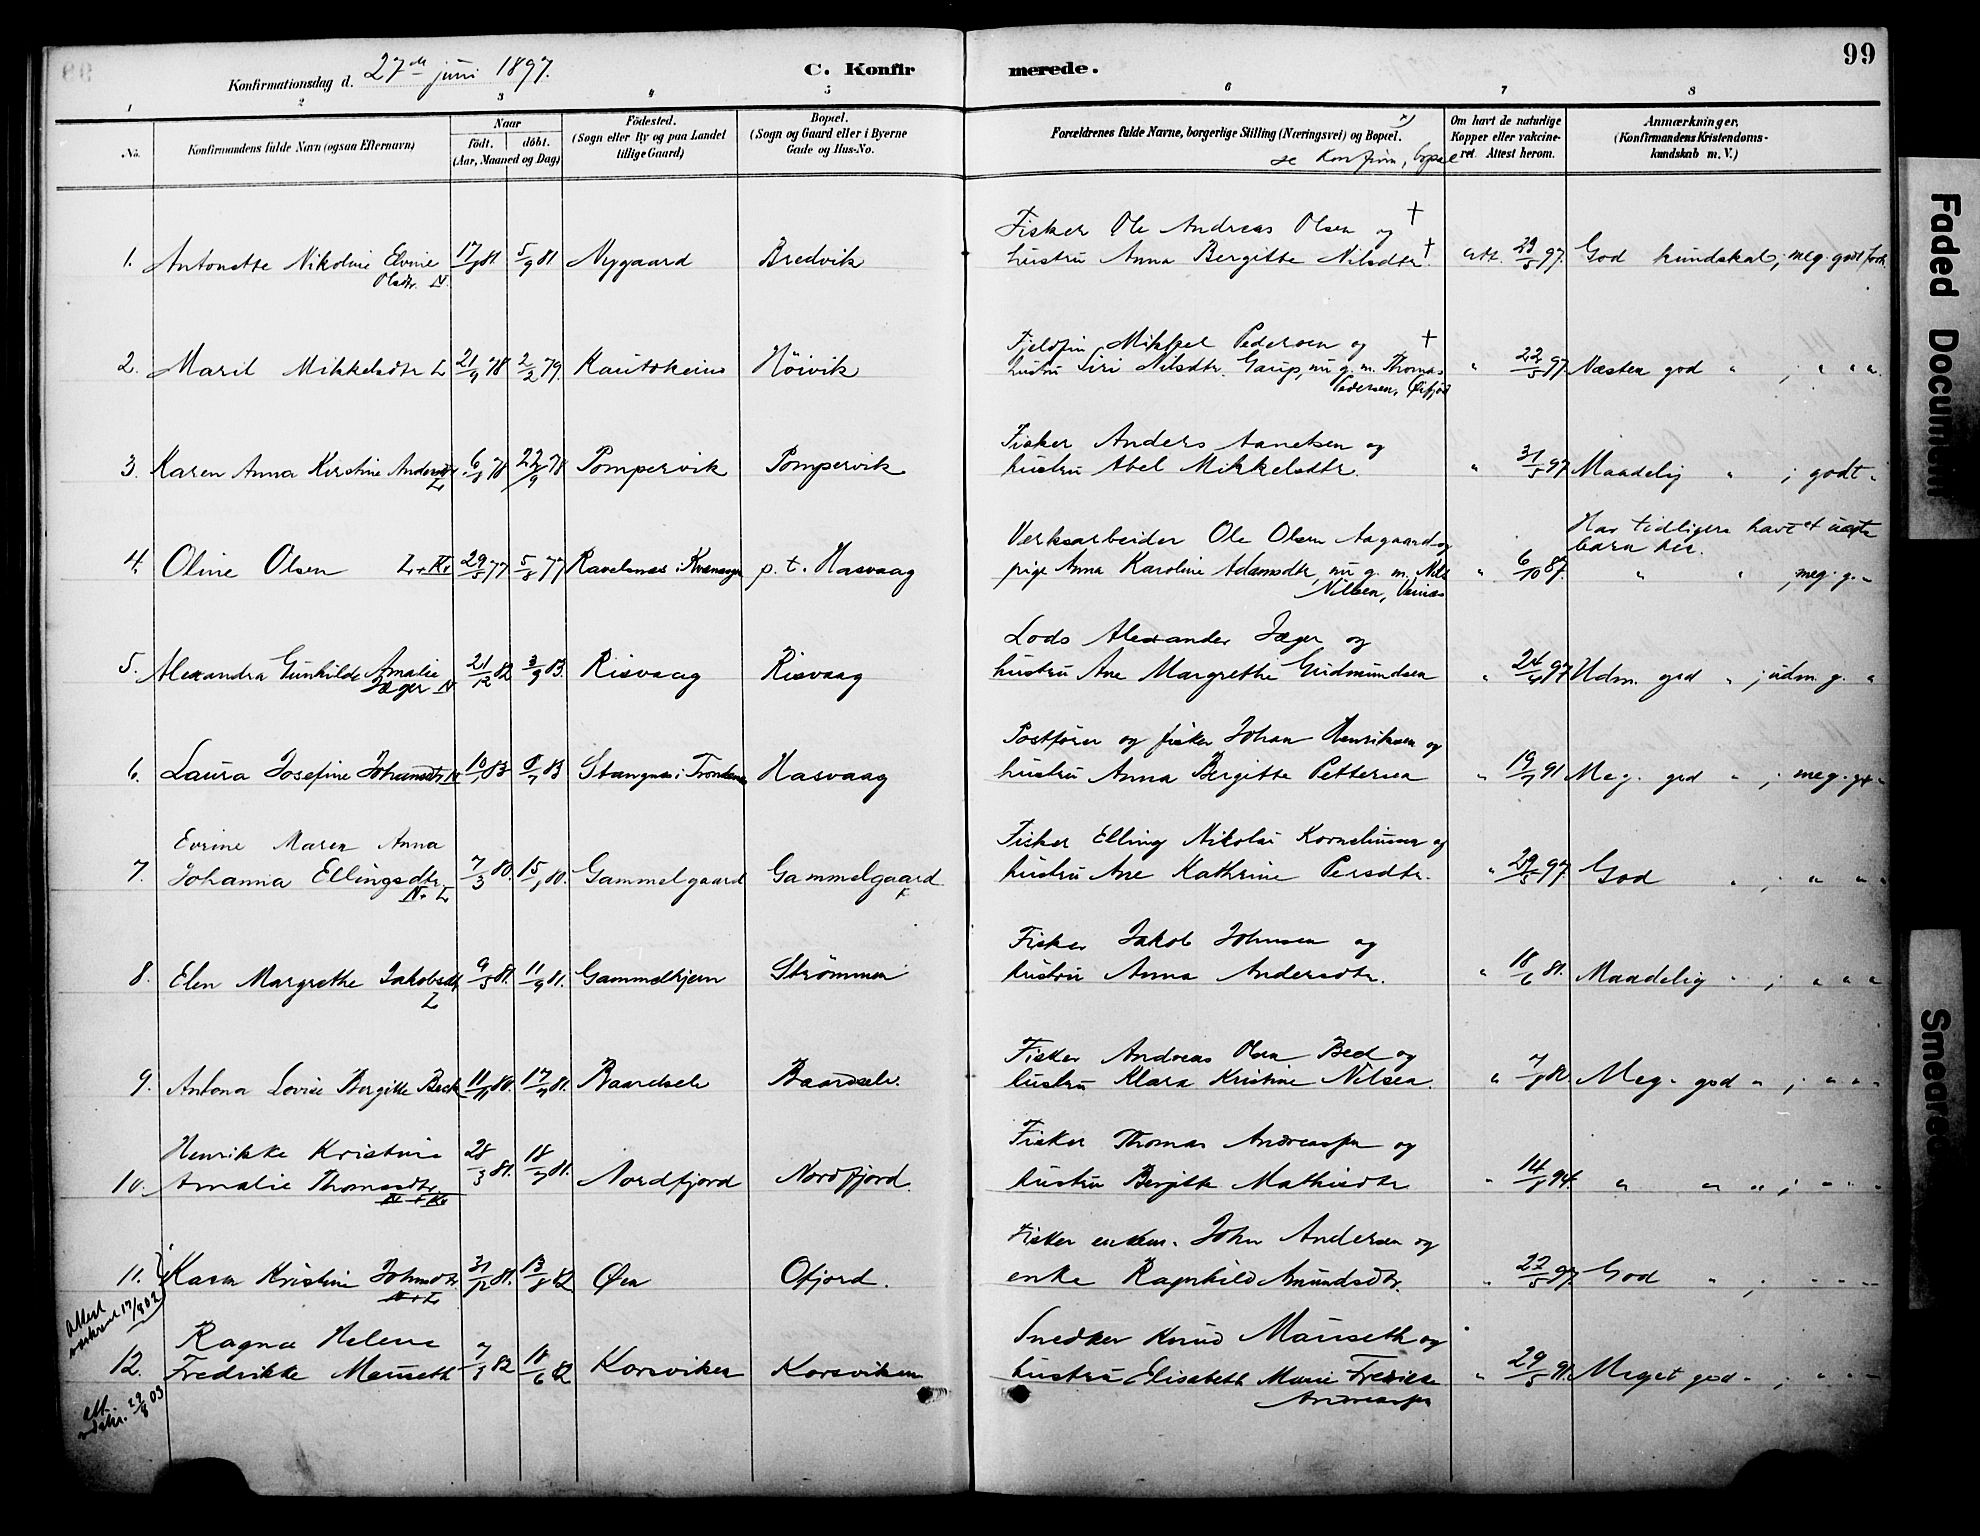 99
Konfirmationsdag d. 27de juni 1897.
C. Konfirmerede.
1 2 3 4 5 6 7 8
No.
Konfirmandens fulde Navn (ogsaa Efternavn)
Naar
født. døbt.
(Aar, Maaned og Dag)
Fødested.
(Sogn eller By og paa Landet
tillige Gaard)
Bopæl.
(Sogn og Gaard eller i Byerne
Gade og Hus-No.
Forældrenes fulde Navne, borgerlige Stilling (Næringsvei) og Bopæl. x)
se Konfirm, bopæl
Om havt de naturlige
Kopper eller vakcine-
ret. Attest herom.
Anmærkninger.
(Konfirmandens Kristendoms-
kundskab m. V.)
Fisker Ole Andreas Olsen og †
1. Antonette Nikoline Elvine 5/9 81 Nygaard Bredvik hustru Anna Bergitte Nilsdtr. † att. 29/5 97. God kundskab; meg. godt forh.
Olsdtr. N.
Fjeldfin Mikkel Pedersen og †
2. Marit Mikkelsdtr L 21/9 78 2/2 79. Kautokeino Höivik hustru Siri Nilsdtr. Gaup, nu g. m. Thomas " 22/5 97 Næsten god " ; " " "
Pedersen, Öxfjord
Fisker Anders Aanetsen og
3. Karen Anna Kirstine Andersdtr. 22/9 78 Pompervik Pompervik hustru Abel Mikkelsdtr. " 31/5 97 Maadelig " ; godt "
L
Har tidligere havt et uægte
Verksarbeider Ole Olsen Aagaard og barn her.
4. Oline Olsen L + Kv 29/5 77 5/8 77 Ravelsnæs i Kvænangen p. t. Hasvaag pige Anna Karoline Adamsdtr, nu g. m. Nils " 6/10 87. " " ; meg. g. "
Nilsen,
Lods Alexander Jæger og
5. Alexandra Gunhilde Amalie 21/12 82 3/9 83. Risvaag Risvaag hustru Ane Margrethe Gudmundsen " 24/4 97 Udm. god " ; udm. g. "
Jæger N
Postfører og fisker Johan Henriksen og
6. Laura Josefine Johansdtr N Stangnes i Trondenes Hasvaag hustru Anna Bergitte Pettersen " Meg. god " ; meg. g. "
Evrine Maren Anna
Fisker Elling Nikolai Korneliussen og
7. Johanna Ellingsdtr. 7/3 80. Gammelgaard Gammelgaard hustru Ane Kathrine Persdtr. " 29/5 97 God " ; " " "
N + L
Fisker Jakob Johnsen og
8. Elen Margrethe Jakobsdtr 9/5 81. 11/9 81. Gammelhjem Strömmen hustru Anna Andersdtr. " 18/6 81. Maadelig " ; " " "
L
Fisker Andreas Olsen Bed og
9. Antona Lovise Bergitte Beck Baardsele Baardsele. hustru Klara Kristine Nilsen. " Meg. god " ; " " "
Henrikke Kristine
Fisker Thomas Andreassen og
10. Amalie Thomasdtr 28/3 81. Nordfjord Nordfjord. hustru Bergitte Mathisdtr " " " " ; " " "
N + Kv
Fisker enkem. John Andersen og
11. Karen Kristine Johnsdtr 31/12 81. 13/8 82 Øen Ofjord. enke Ragnhild Amundsdtr. " 22/5 97 God " ; " " "
N + L
Attest
17/9 02
Ragna Helene
Snedker Knud Mauseth og
12. Fredrikke Mauseth 18/6 82 Korsviken Korsviken hustru Elisabeth Marie Fredrikke " 29/5 91. Meget god " ; " " "
Andreassen
att.
udskr. 29/8 03
Faded Document
Smeared